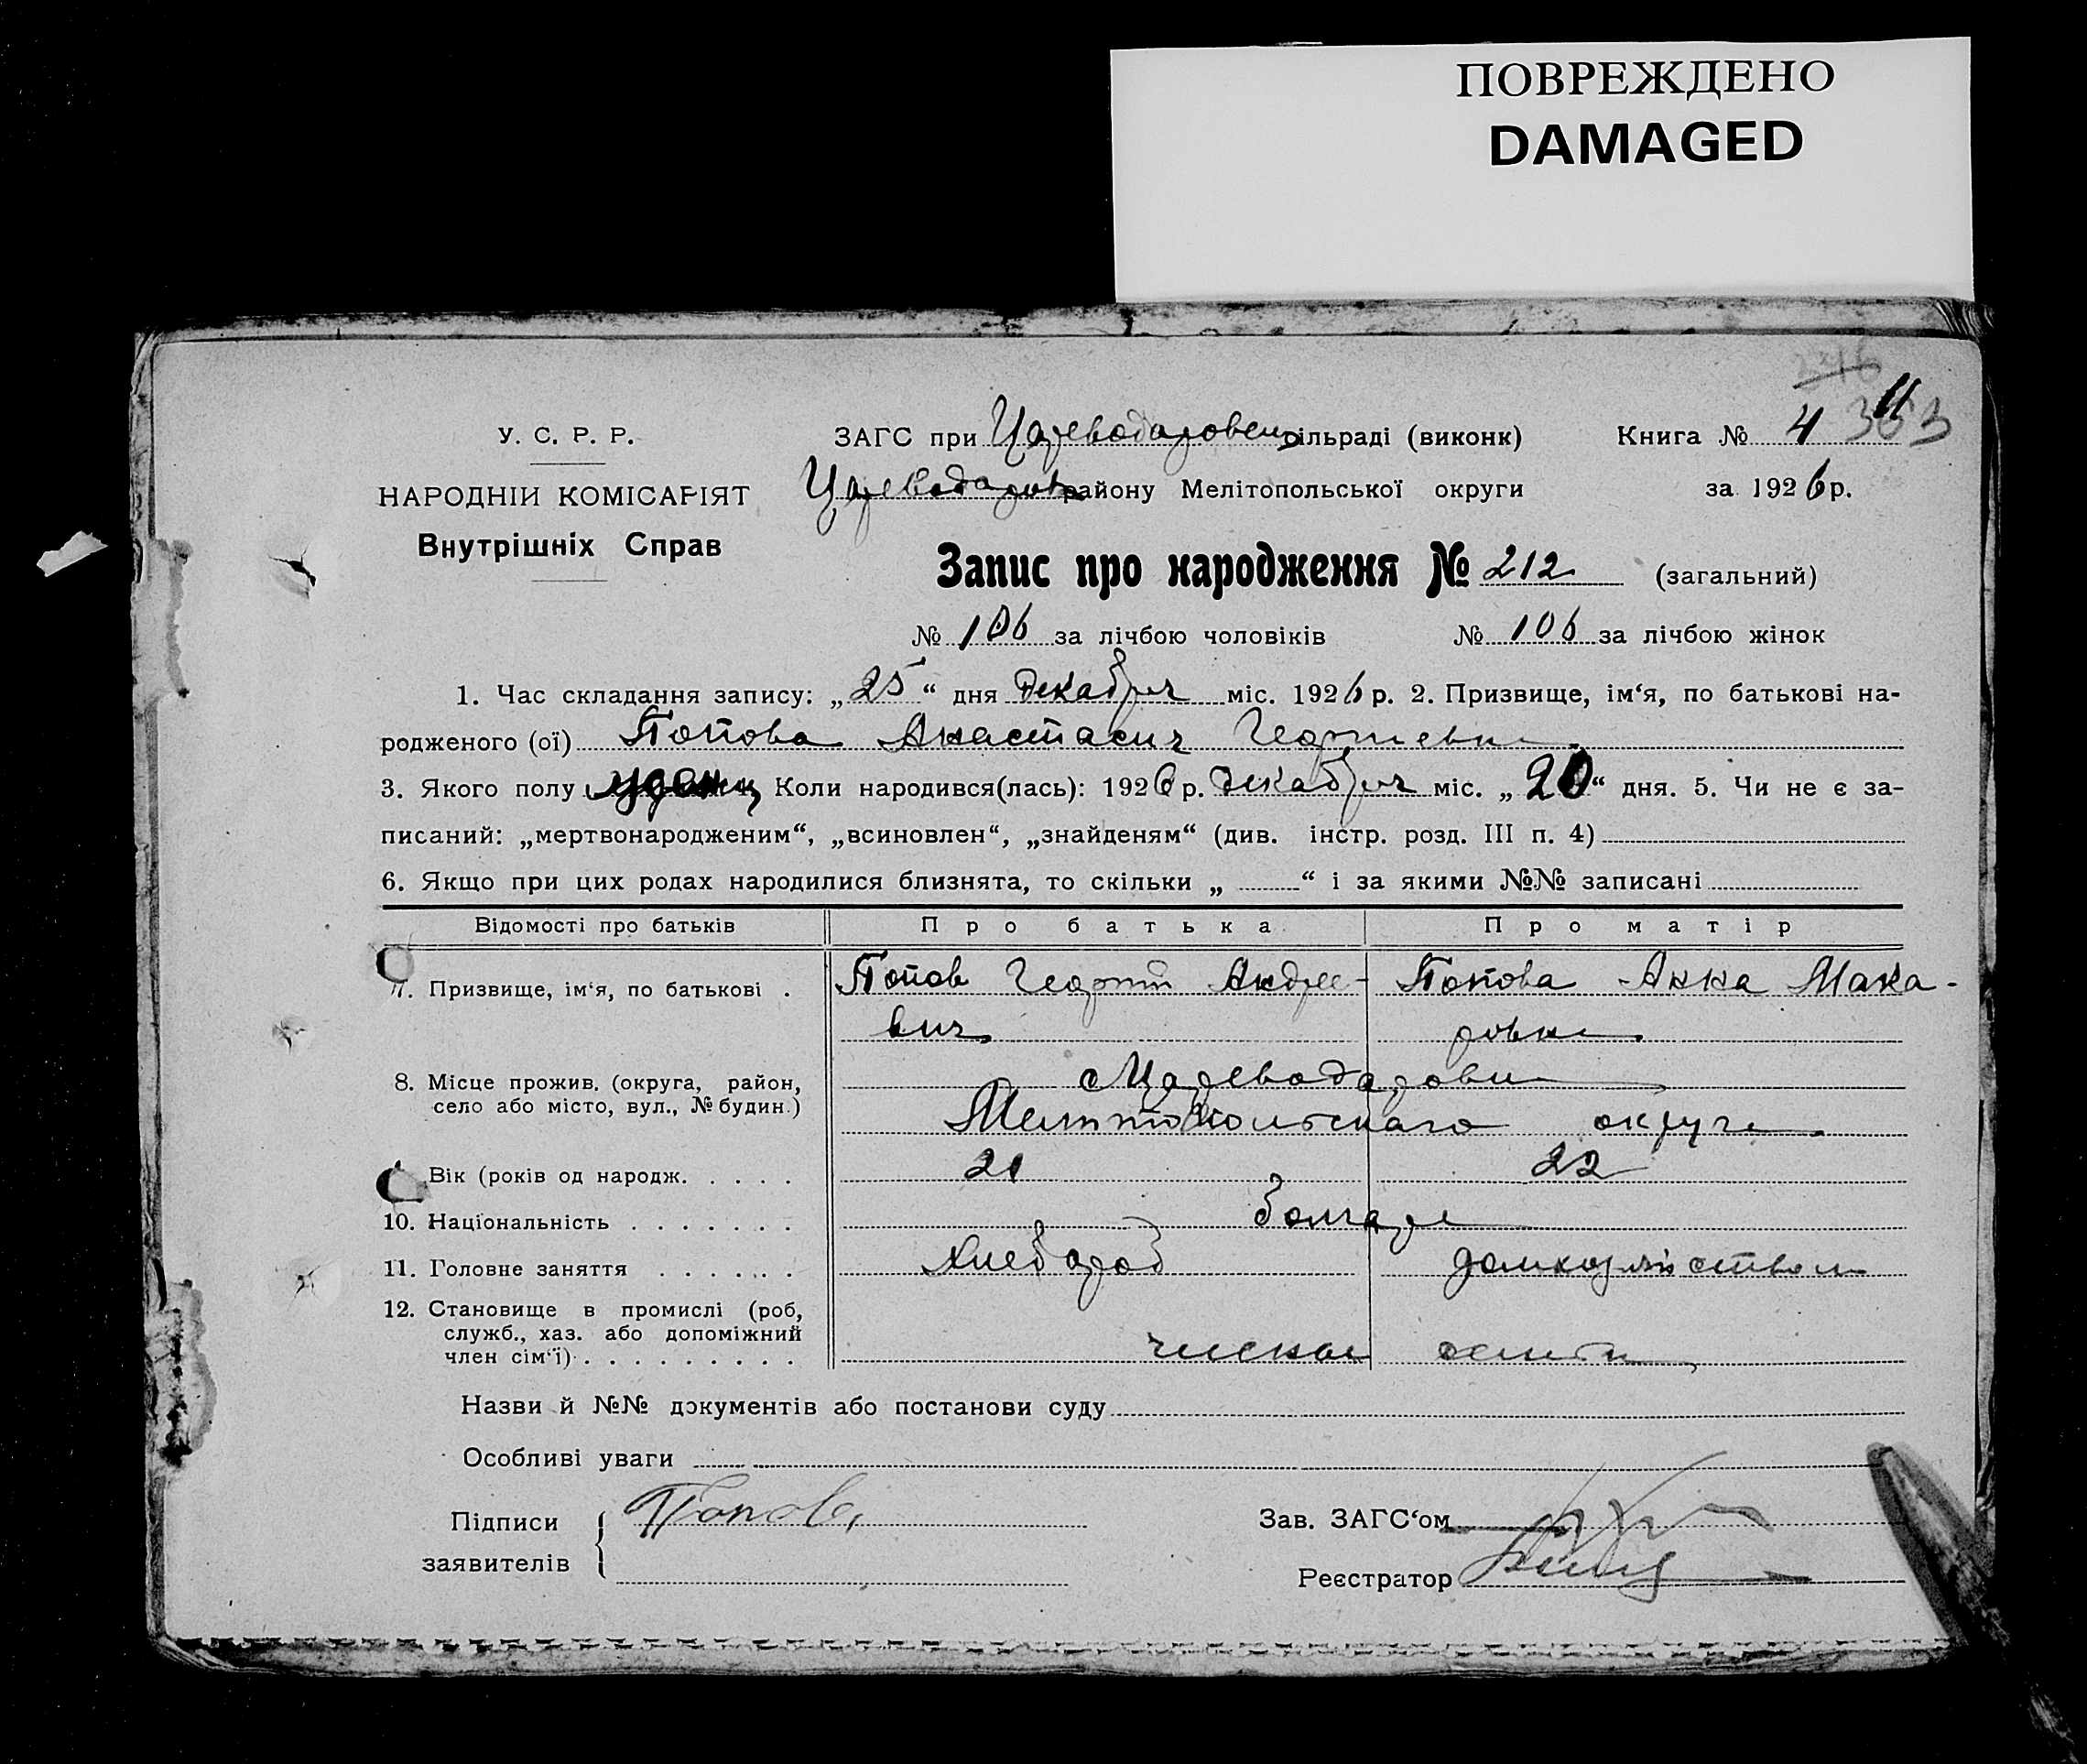 ПОВРЕЖДЕНО
DAMAGED
У. С. Р. Р.
НАРОДНІЙ КОМІСАРІЯТ
Внутрішніх Справ
ЗАГС при Цареводаровец сільраді (виконк)
Книга № 4 363
Цареводаров району Мелітопольської округи
за 1926 р.
Запис про народження № 212 (загальний)
№ 106 за лічбою чоловіків № 106 за лічбою жінок
1. Час складання запису: „25“ дня декабря міс. 1926 р. 2. Призвище, ім‘я, по батькові на-
родженого (ої) Попова Анастасия Георгиевна
3. Якого полу Коли народився(лась): 1926 р. декабря міс. „20“ дня. 5. Чи не є за-
писаний: „мертвонародженим“, „всиновлен“, „знайденям“ (див. інстр. розд. III п. 4)
6. Якщо при цих родах народилися близнята, то скільки „ “ і за якими №№ записані
Відомості про батьків Про батька Про матір
7. Призвище, ім‘я, по батькові . Попов Георгий Андрее- Попова Анна Мака-
вич ровна
8. Місце прожив. (округа, район, с Цареводаровка
село або місто, вул., № будин.) Мелитопольскаго округа
Вік (років од народж. . . . . 21 22
10. Національність . . . . . . . болгаре
11. Головне заняття . . . . . . хлебороб домхозяйством
12. Становище в промислі (роб,
служб., хаз. або допоміжний
член сім‘ї) . . . . . . . . . члены семьи
Назви й №№ документів або постанови суду
Особливі уваги
Підписи Попов
заявителів
Зав. ЗАГС‘ом
Реєстратор